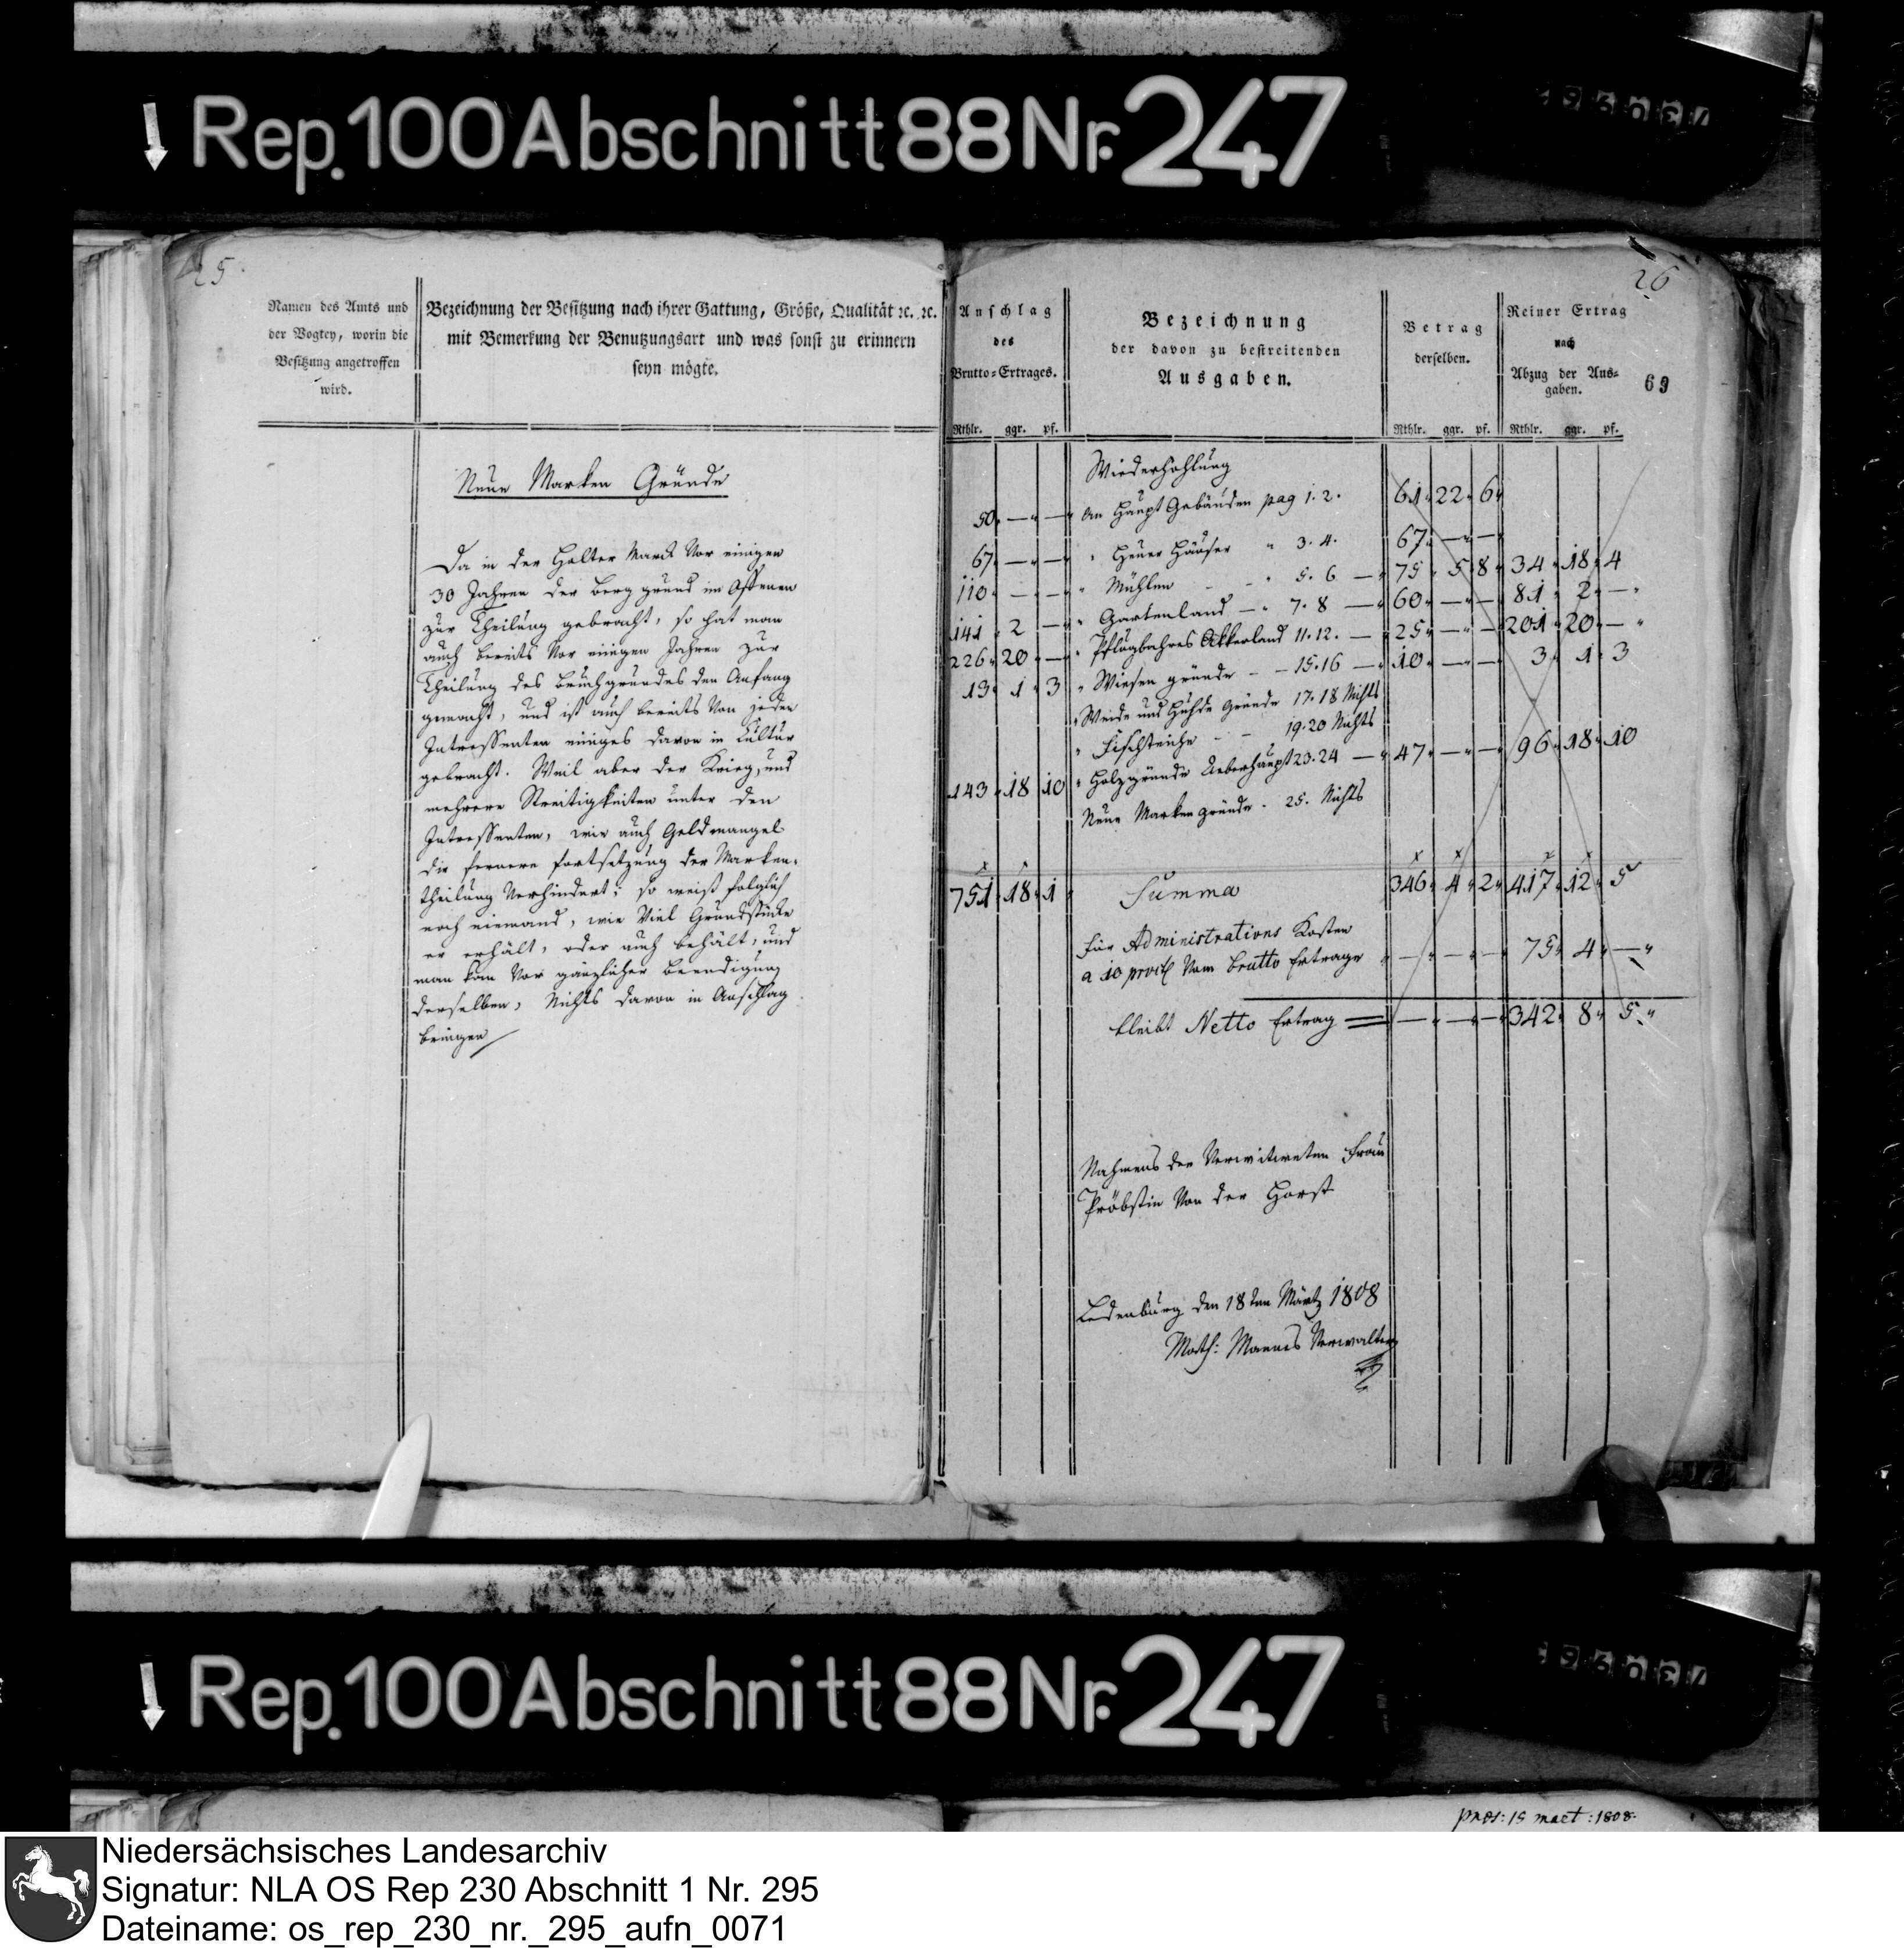 Rep. 100 Abschnitt 88 Nr. 247
25.
Namen des Amts und
der Vogtey, worin die
Besitzung angetroffen
wird.
Bezeichnung der Besitzung nach ihrer Gattung, Größe, Qualität ꝛc. ꝛc.
mit Bemerkung der Benutzungsart und was sonst zu erinnern
seyn mögte.
Neue Marken Gründe
Da in der Holter Marck vor einigen
30 Jahren der Berg grund im Offenen
zur Theilung gebracht, so hat man
auch bereits vor einigen Jahren zur
Theilung des Bruchgrundes den Anfang
gemacht, und ist auch bereits von jeden
Interessenten einiges davon in Cultur
gebracht. Weil aber der Krieg, und
mehrere Streitigkeiten unter den
Interessenten, wie auch Geldmangel
die fernere fortsetzung der Marken-
theilung verhindert; so weiß folglich
noch niemand, wie viel Grundstücke
er erhält, oder auch behält, und
man kan vor gänzlicher Beendigung
derselben, Nichts davon in Anschlag
bringen
26
69
Anschlag
des
Brutto-Ertrages.
Rthlr. ggr. pf.
Bezeichnung
der davon zu bestreitenden
Ausgaben.
Betrag
derselben.
Rthlr. ggr. pf.
Reiner Ertrag
nach
Abzug der Aus-
gaben.
Rthlr. ggr. pf.
Wiederhohlung
50 — — An Haupt Gebäuden pag 1. 2. 61 22 6
67 — — " Heuer Häuser " 3. 4. 67 — —
110 — — " Mühlen - - " 5. 6 — 75 5 8 34 18 4
141 2 — " Gartenland — " 7. 8 — 60 — — 81 2 —
226 20 — " Pflugbahres Akkerland 11. 12. — 25 — — 201 20 —
13 1 3 " Wiesen gründe - - 15. 16 — 10 — — 3 1 3
" Weide und Huhde Gründe 17. 18 Nichts
" Fischteiche - - 19. 20 Nichts
143 18 10 " Holzgründe Ueberhaupt 23. 24 — 47 — — 96 18 10
Neue Marken gründe - 25. Nichts
751 18 1 Summa 346 4 2 417 12 5
Für Administrations Kosten
a 10 procent vom Brutto Ertrage — — — 75 4 —
bleibt Netto Ertrag — — — 342 8 5
Nahmens der Verwitweten Frau
Pröbstin von der Horst
Ledenburg den 18ten Märtz 1808
Math: Mannes Verwalter
Rep. 100 Abschnitt 88 Nr. 247
praes: 19 mart: 1808.
Niedersächsisches Landesarchiv
Signatur: NLA OS Rep 230 Abschnitt 1 Nr. 295
Dateiname: os_rep_230_nr._295_aufn_0071